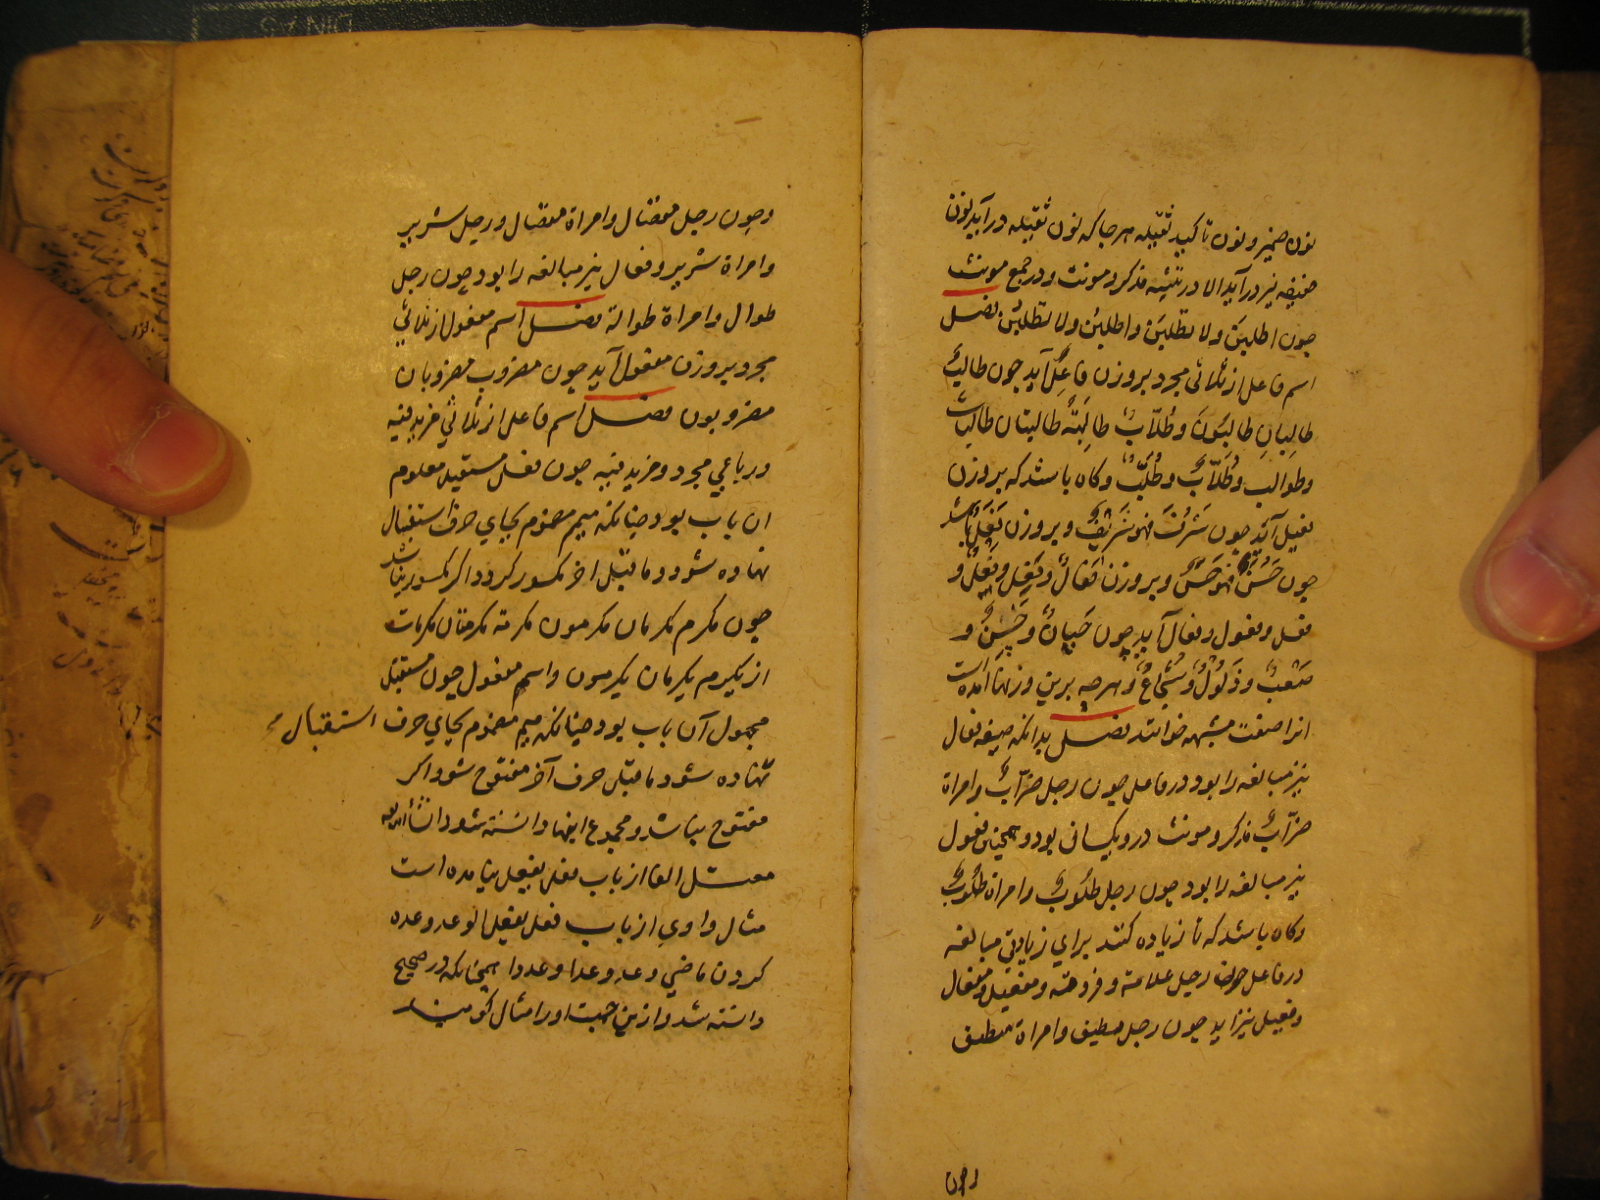 نون ضمیر و نون تاکید ثقیله هر جا که نون ثقیله در آید نون
خفیفه نیز در آید الا در تثنیه مذکر و مونث و در جمع مونث
چون اطلبن ولا تطلبن واطلبن ولا تطلبن فصل
اسم فاعل از ثلاثی مجرد بر وزن فاعل آید چون طالب
طالبان طالبون وطلاب طالبة طالبتان طالبات
وطوالب وطلاب وطلب وکاه باشد که بر وزن
فعیل آید چون شرف فهو شریف و بر وزن فعل باشد
چون حسن فهو حسن و بر وزن فعال وفعل وفعل و
فعل وفعول وفعال آید چون جبان وخشن و
صعب وذلول وشجاع وهرچه برین وزنها آمده است
انرا صفت مشبهه خوانند فصل بدانکه صیغه فعال
نیز مبالغه را بود در فاعل چون رجل ضراب وامراة
ضراب مذکر ومونث درو یکسان بود وهمچنین فعول
نیز مبالغه را بود چون رجل طلوب وامراة طلوب
وکاه باشد که تا زیاده کنند برای زیادتی مبالغه
در فاعل چون رجل علامة وفروقة ومفعیل ومفعال
وفعیل نیز آید چون رجل منطیق وامراة منطیق
وچون
وچون رجل مفضال وامراة مفضال ورجل شریر
وامراة شریر وفعال نیز مبالغه را بود چون رجل
طوال وامراة طوالة فصل اسم مفعول از ثلاثی
مجرد بر وزن مفعول آید چون مضروب مضروبان
مضروبون فصل اسم فاعل از ثلاثی مزید فیه
ورباعی مجرد ومزید فیه چون فعل مستقبل معلوم
ان باب بود چنانکه میم مضموم بجای حرف استقبال
نهاده شود وما قبل اخر مکسور کردد اکر مکسور نباشد
چون مکرم مکرمان مکرمون مکرمة مکرمتان مکرمات
از یکرم یکرمان یکرمون واسم مفعول چون مستقبل
مجهول آن باب بود چنانکه میم مضموم بجای حرف استقبال
نهاده شود ما قبل حرف آخر مفتوح شود اکر
مفتوح نباشد ومجموع اینها دانسته شود ان شاء الله
معتل الفا از باب فعل یفعل نیامده است
مثال واوی از باب فعل یفعل الوعد وعده
کردن ماضی وعد وعدا وعدوا همچنانکه در صحیح
دانسته شد وازین جهت اورا مثال کویند